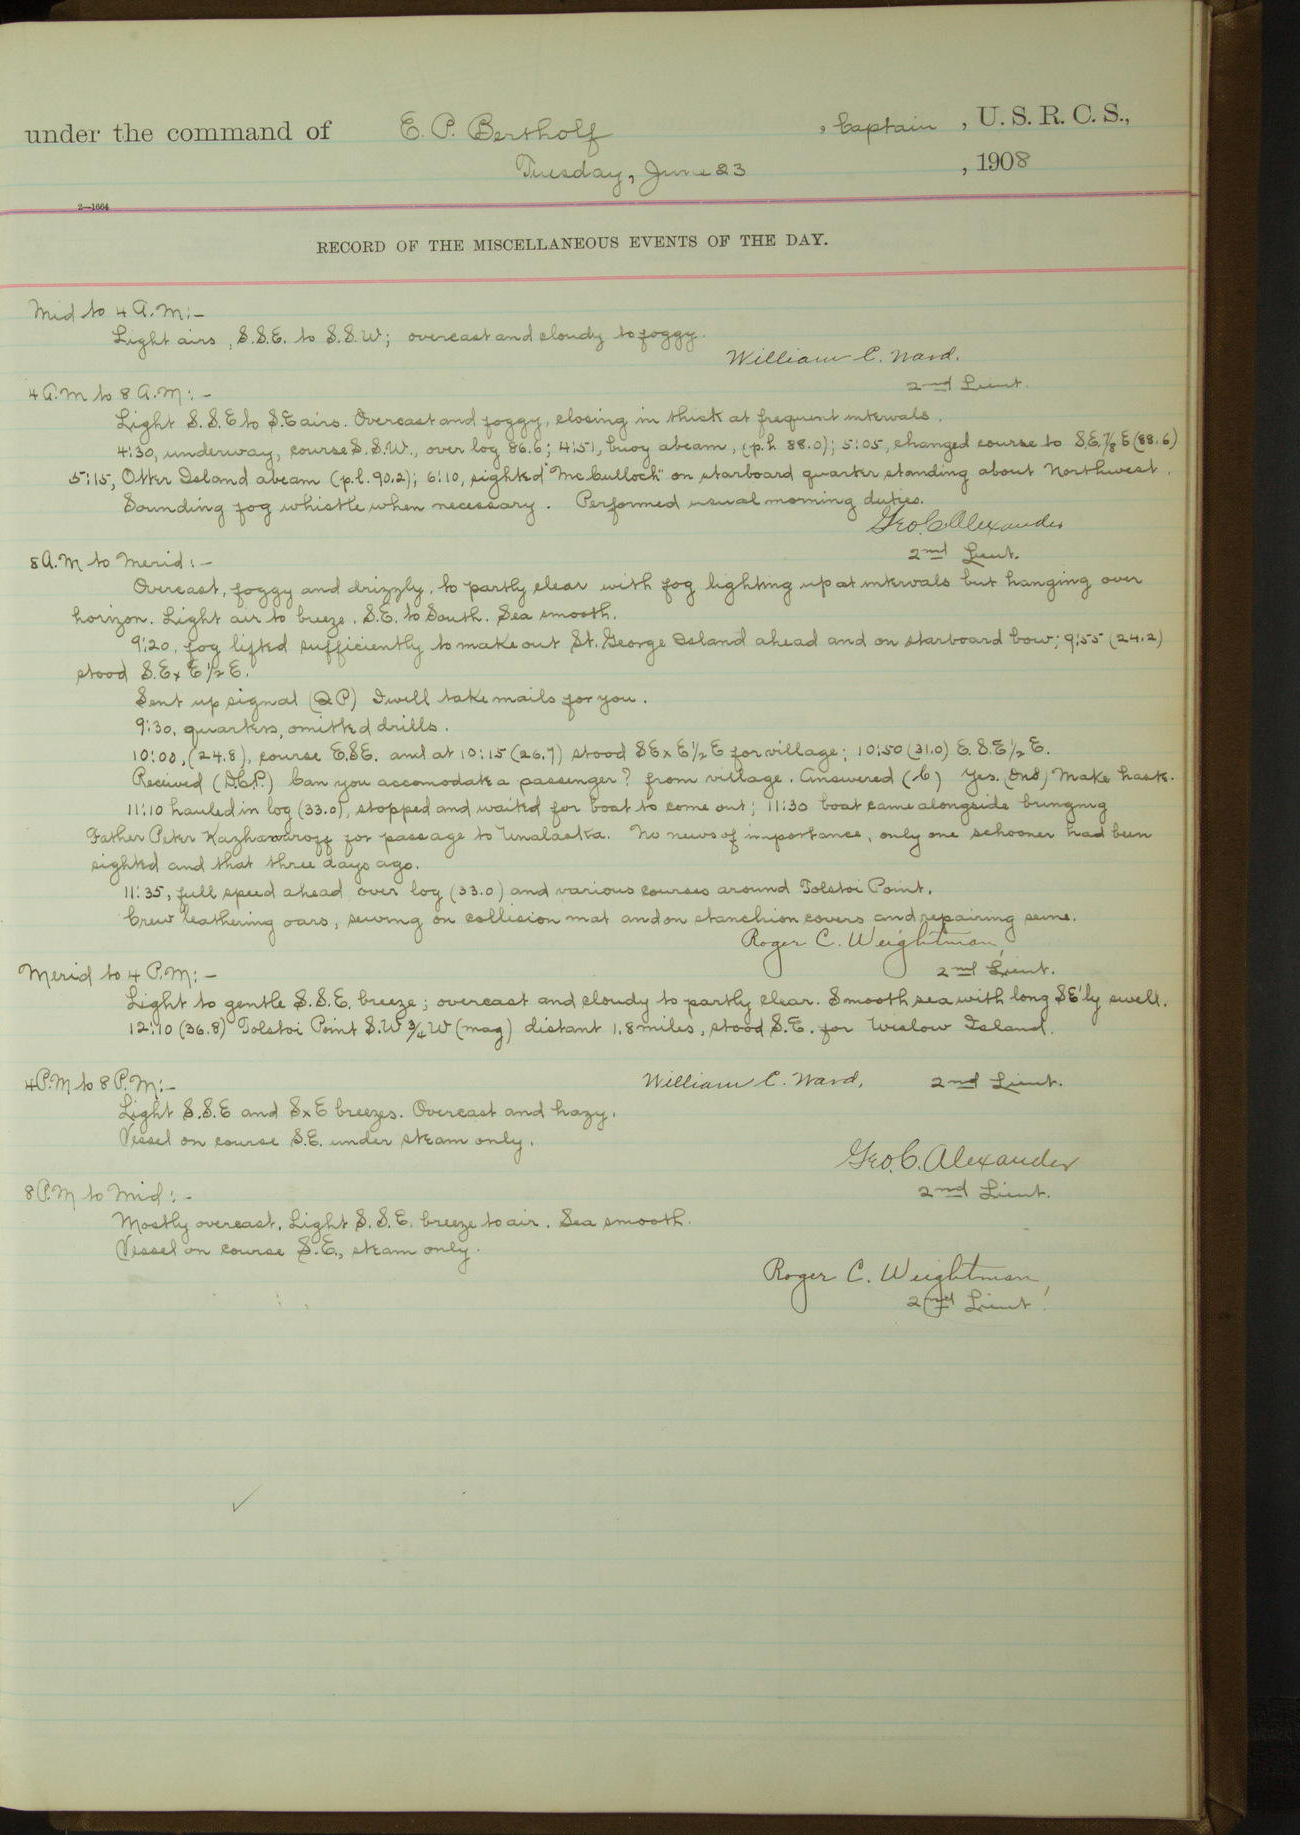 under the command of E. P. Bertholf , Captain , U. S. R. C. S.,
Tuesday, June 23 , 1908
2—1664
RECORD OF THE MISCELLANEOUS EVENTS OF THE DAY.
Mid to 4 A.M:—
Light airs, S.S.E. to S.S.W; overcast and cloudy to foggy.
William C. Ward.
2nd Lieut.
4 A.M to 8 A.M:—
Light S.S.E to S.E airs. Overcast and foggy, closing in thick at frequent intervals.
4:30, underway, course S.S.W., over log 86.6; 4:51, buoy abeam, (p.l. 88.0); 5:05, changed course to S.E.7/8 E (88.6)
5:15, Otter Island abeam (p.l. 90.2); 6:10, sighted "McCulloch" on starboard quarter standing about Northwest.
Sounding fog whistle when necessary. Performed usual morning duties.
Geo. C. Alexander
2nd Lieut.
8 A.M to Merid:—
Overcast, foggy and drizzly, to partly clear with fog lighting up at intervals but hanging over
horizon. Light air to breeze, S.E. to South. Sea smooth.
9:20, fog lifted sufficiently to make out St. George Island ahead and on starboard bow; 9:55 (24.2)
stood S.E x E 1/2 E.
Sent up signal (QP) I will take mails for you.
9:30, quarters, omitted drills.
10:00, (24.8), course E.S.E. and at 10:15 (26.7) stood SE x E 1/2 E for village; 10:50 (31.0) E.S.E 1/2 E.
Received (D.C.P.) Can you accomodate a passenger? from village. Answered (C) Yes. Make haste.
11:10 hauled in log (33.0), stopped and waited for boat to come out; 11:30 boat came alongside bringing
Father Peter Kazhamaroff for passage to Unalaska. No news of importance, only one schooner had been
sighted and that three days ago.
11:35, full speed ahead over log (33.0) and various courses around Tolstoi Point.
Crew leathering oars, sewing on collision mat and on stanchion covers and repairing seine.
Roger C. Weightman,
2nd Lieut.
Merid to 4 P.M:—
Light to gentle S.S.E. breeze; overcast and cloudy to partly clear. Smooth sea with long SE'ly swell.
12:10 (36.8) Tolstoi Point S.W 3/4 W (mag) distant 1.8 miles, stood S.E. for Wislow Island.
William C. Ward, 2nd Lieut.
4 P.M to 8 P.M:—
Light S.S.E and S x E breezes. Overcast and hazy.
Vessel on course S.E. under steam only.
Geo. C. Alexander
2nd Lieut.
8 P.M to Mid:—
Mostly overcast, Light S.S.E. breeze to air. Sea smooth.
Vessel on course S.E., steam only.
Roger C. Weightman,
2nd Lieut.